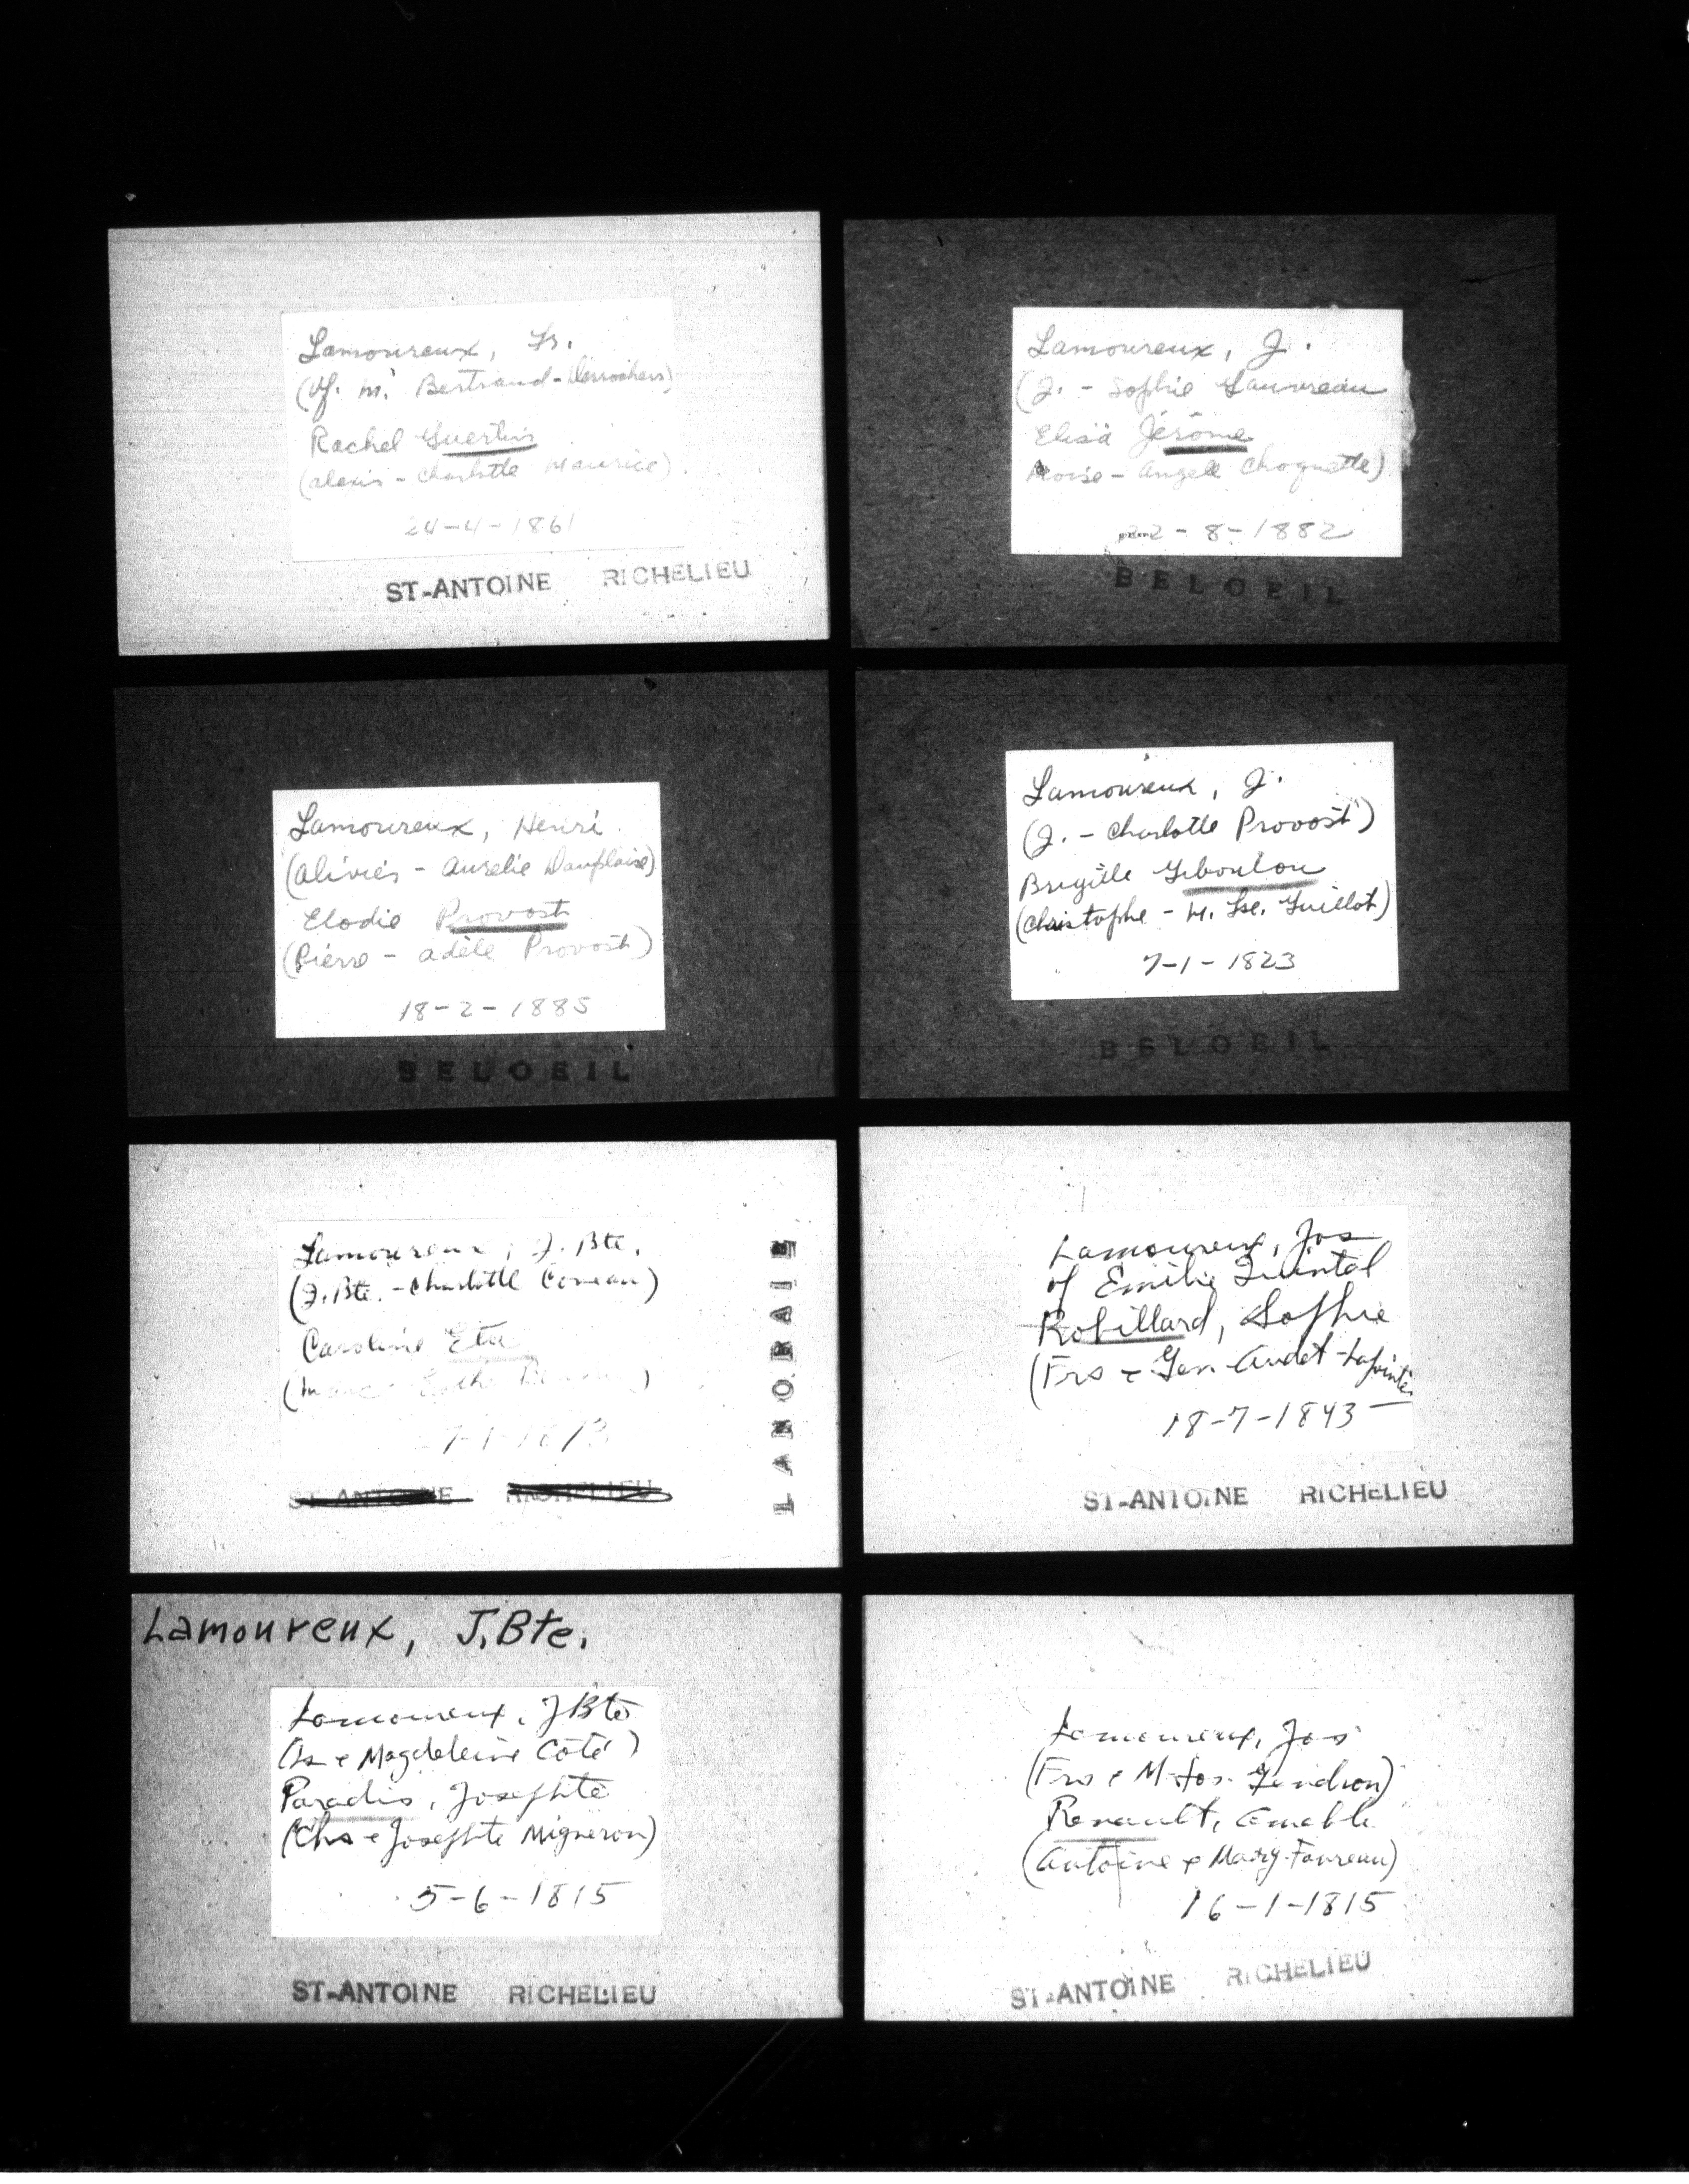 Lamoureux, Fr.
(Vf. M. Bertrand-Desrochers)
Rachel Guertin
(Alexis - Charlotte Maurice)
24-4-1861
ST-ANTOINE RICHELIEU
Lamoureux, J.
(J. - Sophie Gauvreau
Elisa Jérôme
Moise - Angele Choquette)
22-8-1882
BELOEIL
Lamoureux, Henri
(Olivier - Aurelie Dauplaise)
Elodie Provost
(Pierre - Adèle Provost)
18-2-1885
BELOEIL
Lamoureux, J.
(J. - Charlotte Provost)
Brigitte Giboulou
(Christophe - M. Lse. Guillot)
7-1-1823
BELOEIL
Lamoureux, J. Bte.
(J. Bte. - Charlotte Comeau)
Caroline
ST-ANTOINE RICHELIEU
LANORAIE
Lamoureux, Jos
vf Emilie Quintal
Robillard, Sophie
(Frs e Gen. Audet-Lapointe
18-7-1843
ST-ANTOINE RICHELIEU
Lamoureux, J.Bte.
Lamoureux, J Bte
(Is e Magdeleine Côté)
Paradis, Josephte
(Chs e Josephte Migneron)
5-6-1815
ST-ANTOINE RICHELIEU
Lamoureux, Jos
(Frs e M-Jos. Gendron)
Renault, Amable
(Antoine e Marg. Favreau)
16-1-1815
ST-ANTOINE RICHELIEU